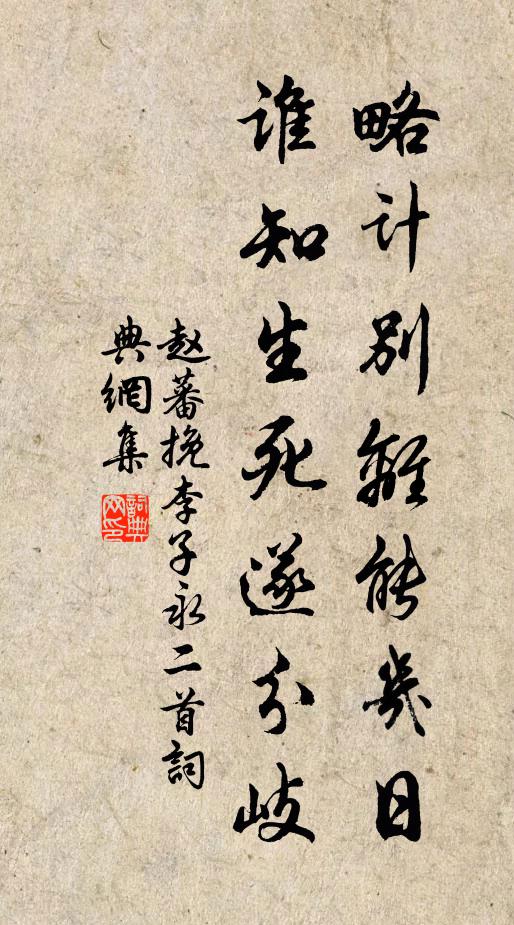 略计别離能幾日
谁知生死遂分岐
赵蕃挽李子永二首詞
典網集
詞典网印